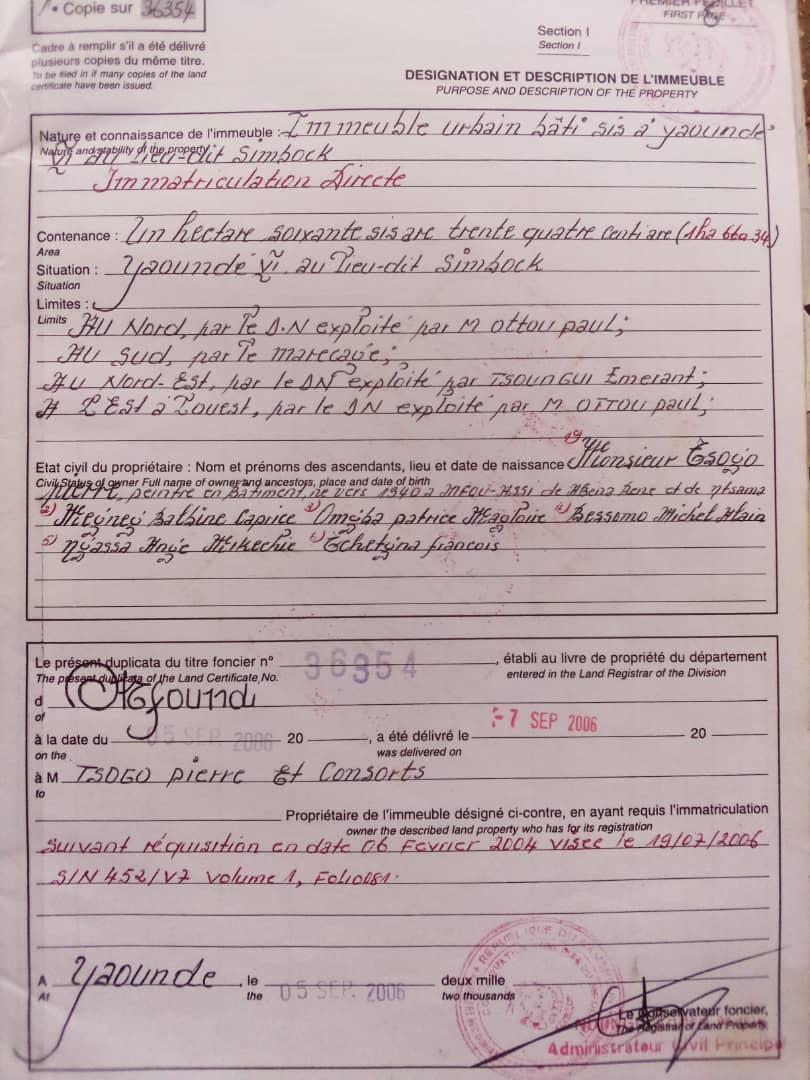 Copie sur 36354
PREMIER FEUILLET
FIRST PAGE
Cadre à remplir s'il a été délivré
plusieurs copies du même titre.
To be filed in if many copies of the land
certificate have been issued.
Section I
Section I
DESIGNATION ET DESCRIPTION DE L'IMMEUBLE
PURPOSE AND DESCRIPTION OF THE PROPERTY
Nature et connaissance de l'immeuble : Immeuble urbain bâti sis à Yaoundé
Nature and stability of the property
VI au lieu-dit Simbock
Immatriculation Directe
Contenance : Un hectare soixante sis are trente quatre centiare (1ha 66a 34)
Area
Situation : Yaoundé VI au lieu-dit Simbock
Situation
Limites :
Limits
AU Nord, par le D.N exploité par M OTTOU paul;
AU Sud, par le marecage;
AU Nord-Est, par le DN exploité par TSOUNGUI Emerant;
A l'Est à l'ouest, par le DN exploité par M OTTOU paul;
Etat civil du propriétaire : Nom et prénoms des ascendants, lieu et date de naissance 1) Monsieur Tsogo
Civil Status of owner Full name of owner and ancestors, place and date of birth
pierre, peintre en Bâtiment, né vers 1940 à de Mbena Bene et de Ntsama
2) Balbine Caprice 3) patrice Magloire 4) Bessomo Michel Alain
5) 6) francois
Le présent duplicata du titre foncier n° 36354, établi au livre de propriété du département
The present duplicata of the Land Certificate No. entered in the Land Registrar of the Division
d Mefoundi
of
à la date du 05 SEP. 2006 20 , a été délivré le - 7 SEP 2006 20
on the was delivered on
à M TSOGO pierre Et Consorts
to
Propriétaire de l'immeuble désigné ci-contre, en ayant requis l'immatriculation
owner the described land property who has for its registration
Suivant réquisition en date 06 Fevrier 2004 visée le 19/07/2006
S/N 452/V7 Volume 1, Folio081.
A Yaounde, le 05 SEP. 2006 deux mille
At the two thousands
Le Conservateur foncier,
The Registrar of Land Property,
Administrateur Civil Principal